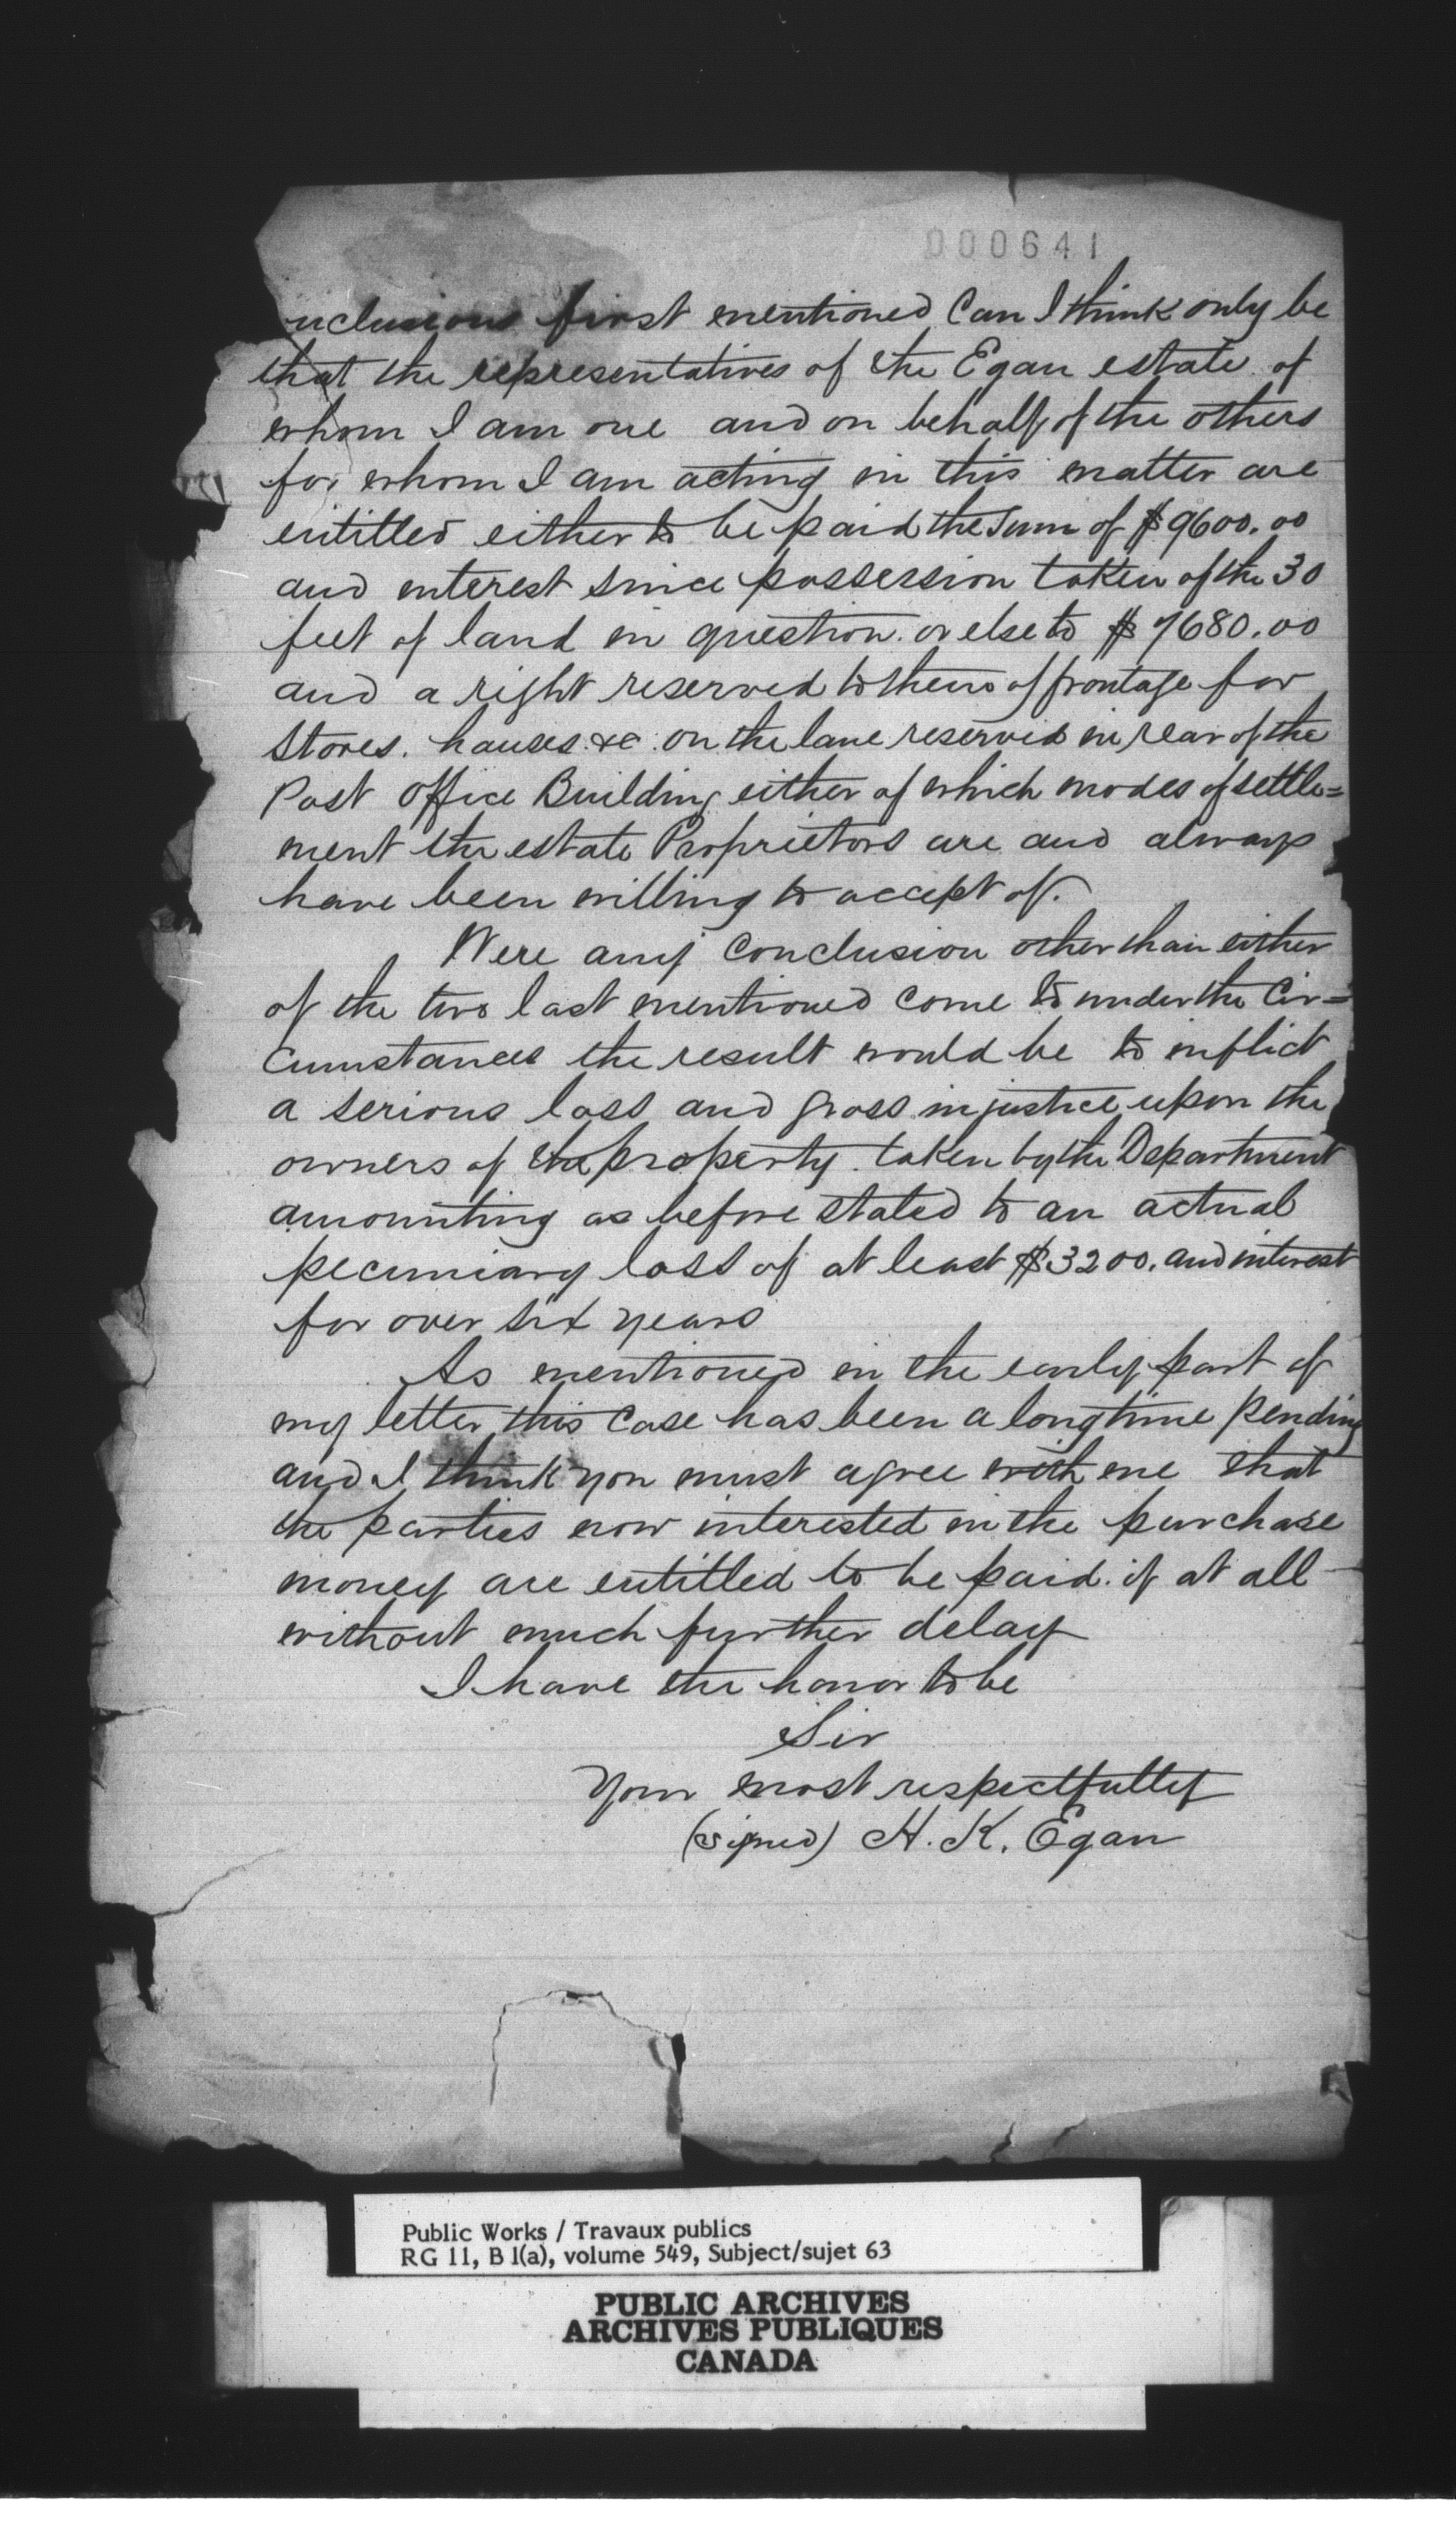 000641
nclusions first mentioned Can I think only be
that the representatives of the Egan estate of
whom I am one and on behalf of the others
for whom I am acting in this matter are
entitled either to be paid the sum of $9600.00
and interest since possession taken of the 30
feet of land in question. or else to $7680.00
and a right reserved to them of frontage for
Stores. houses. &c. on the lane reserved in rear of the
Post Office Building either of which modes of settle=
ment the estate Proprietors are and always
have been willing to accept of.
Were any Conclusion other than either
of the two last mentioned come to under the Cir=
cumstances the result would be to inflict
a serious loss and gross injustice upon the
owners of the property. taken by the Department
amounting as before stated to an actual
pecuniary loss of at least $3200. and interest
for over six years
As mentioned in the early part of
my letter this Case has been a long time pending
and I think you must agree with me that
the parties now interested in the purchase
money are entitled to be paid. if at all
without much further delay
I have the honor to be
Sir
Your most respectfully
(signed) H. K. Egan
Public Works / Travaux publics
RG 11, B 1(a), volume 549, Subject/sujet 63
PUBLIC ARCHIVES
ARCHIVES PUBLIQUES
CANADA